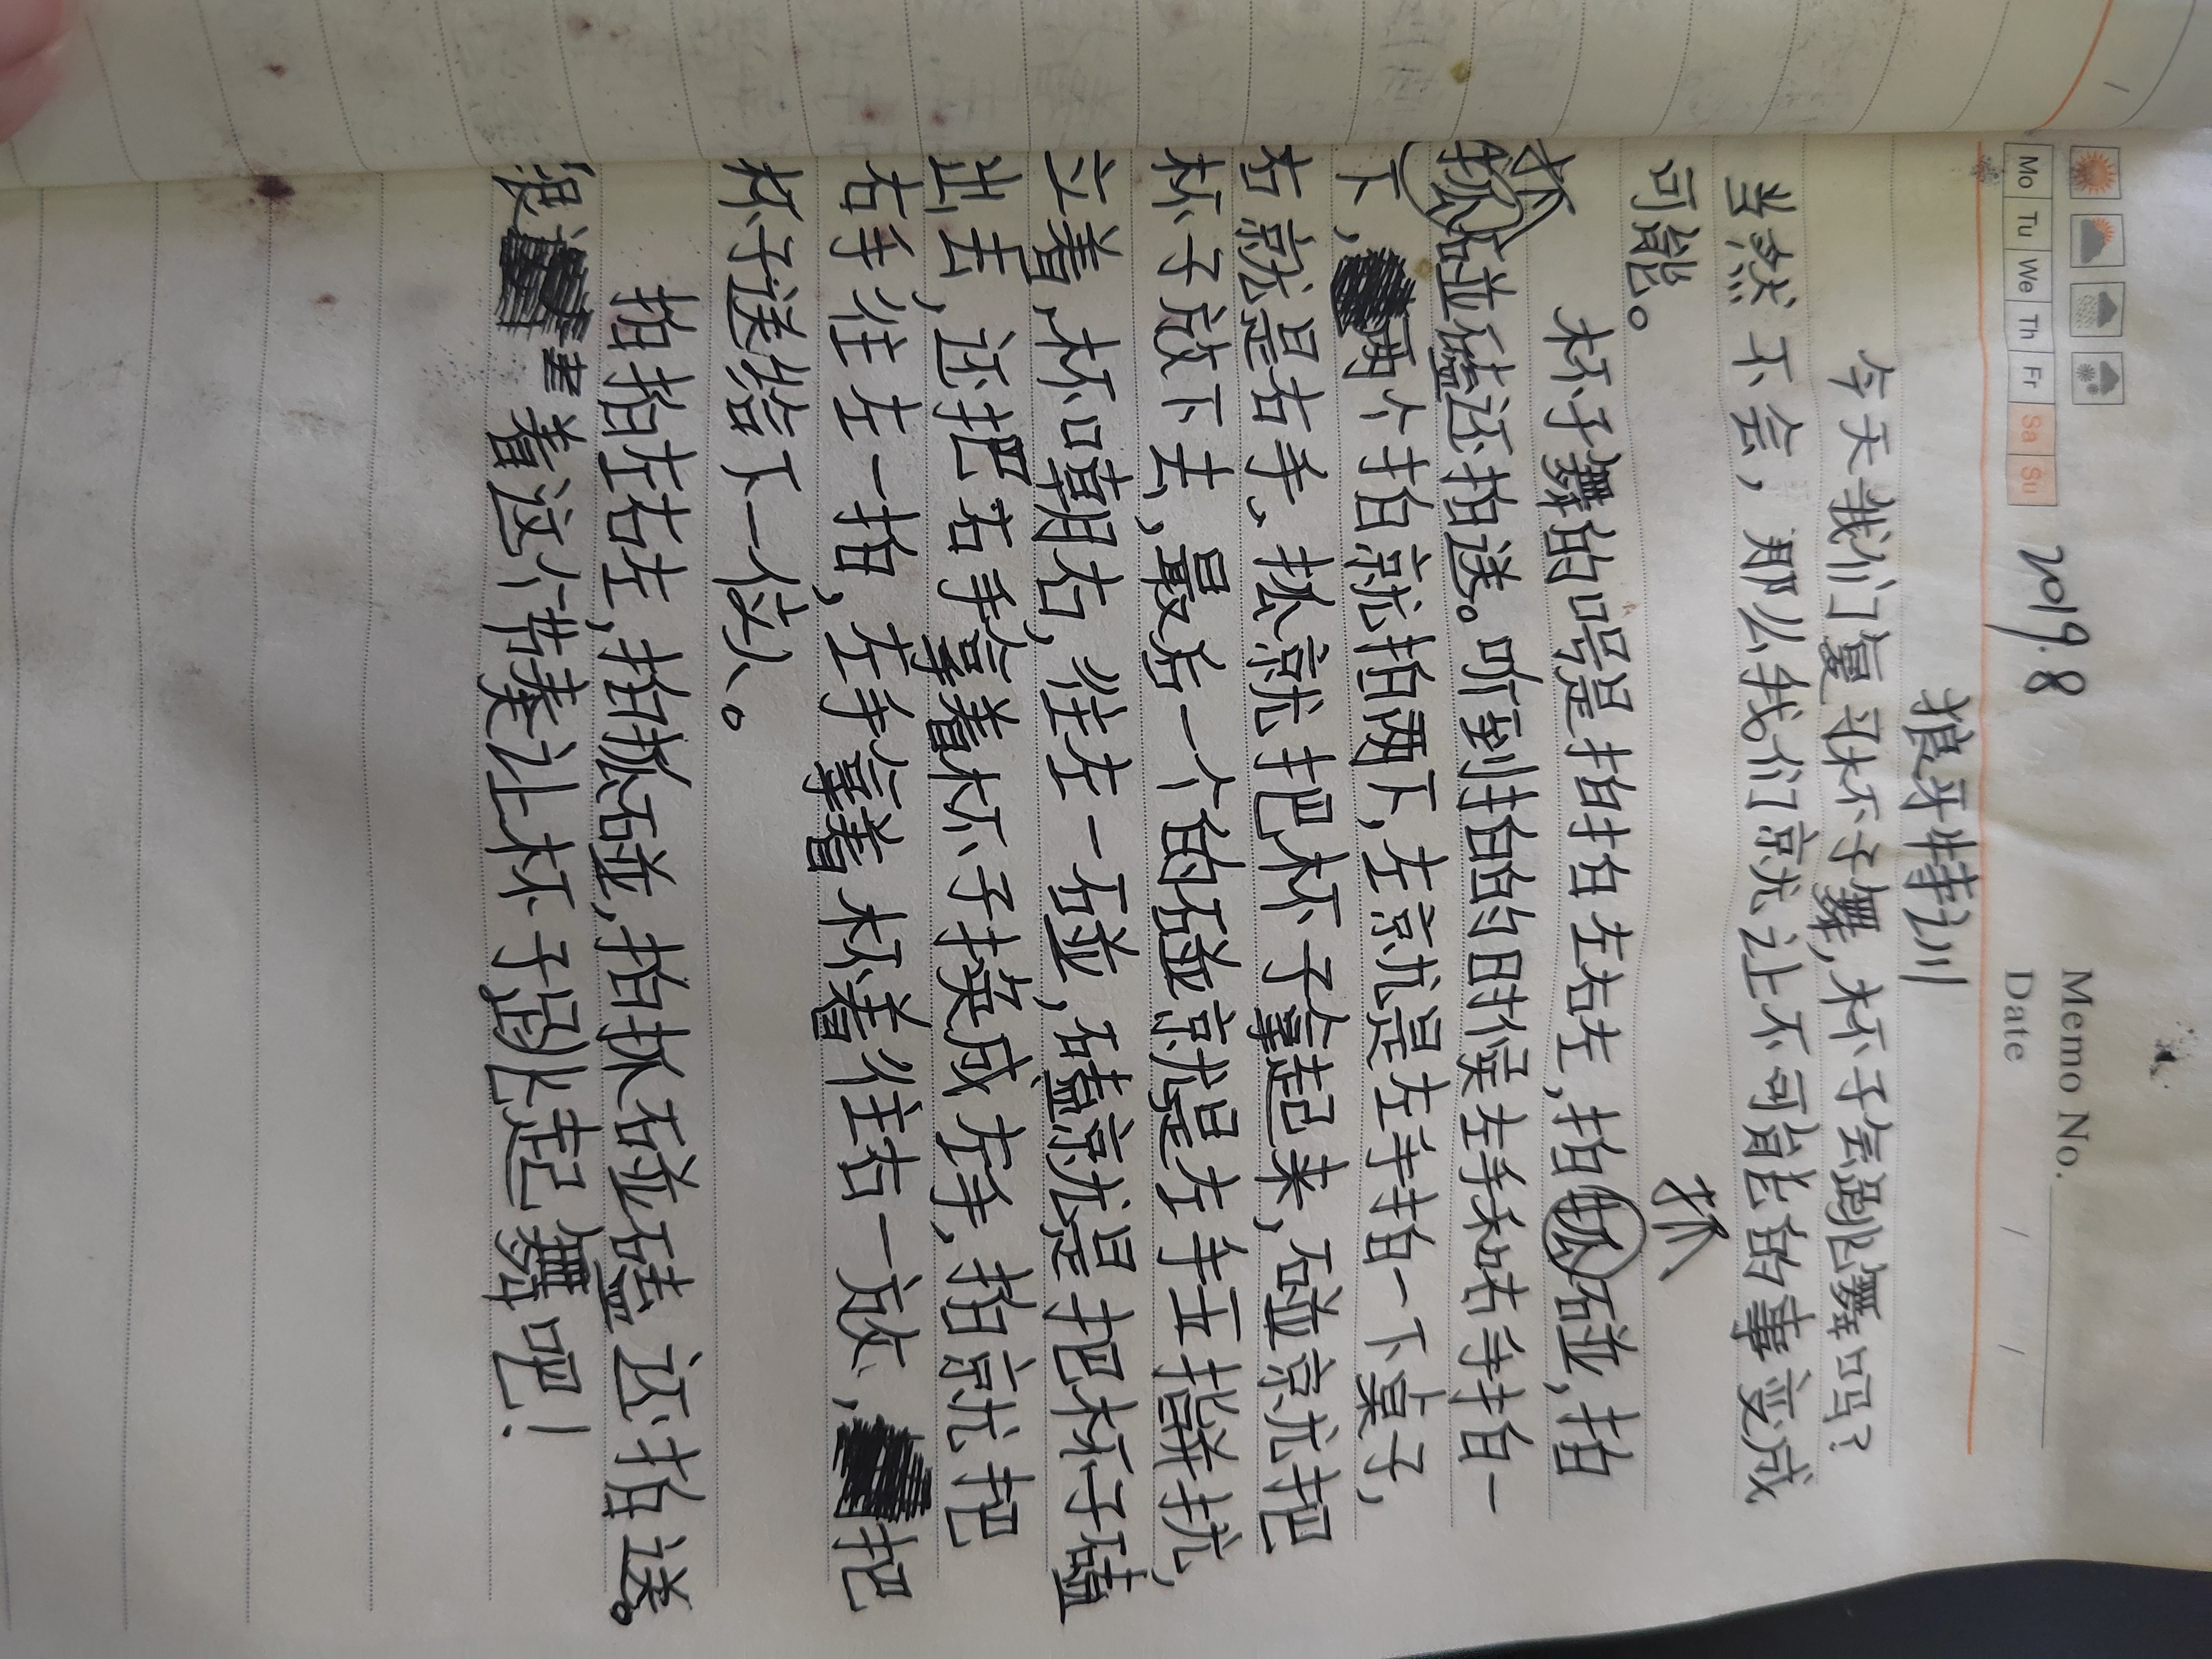 Memo No.
Mo Tu We Th Fr Sa Su 2019.8 Date / /
狼牙特训
今天我们复习杯子舞,杯子会跳舞吗?
当然不会,那么我们就让不可能的事变成
可能。
抓
杯子舞的口号是拍拍左右左,拍抓碰,拍
抓
抓碰磕还拍送。听到拍的时候左手和右手拍一
下,两个拍就拍两下,左就是左手拍一下桌子,
右就是右手、抓就把杯子拿起来,碰就把
杯子放下去,最后一个的碰就是左手五指并拢,
立着,杯口朝右,往左一碰,磕就是把杯子磕
出去,还把右手拿着杯子换成左手,拍就把
右手往左一拍,左手拿着杯着往右一放,把
杯子送给下一位人。
拍拍左右左,拍抓碰,拍抓碰磕还拍送。
着这个节奏让杯子跳起舞吧!